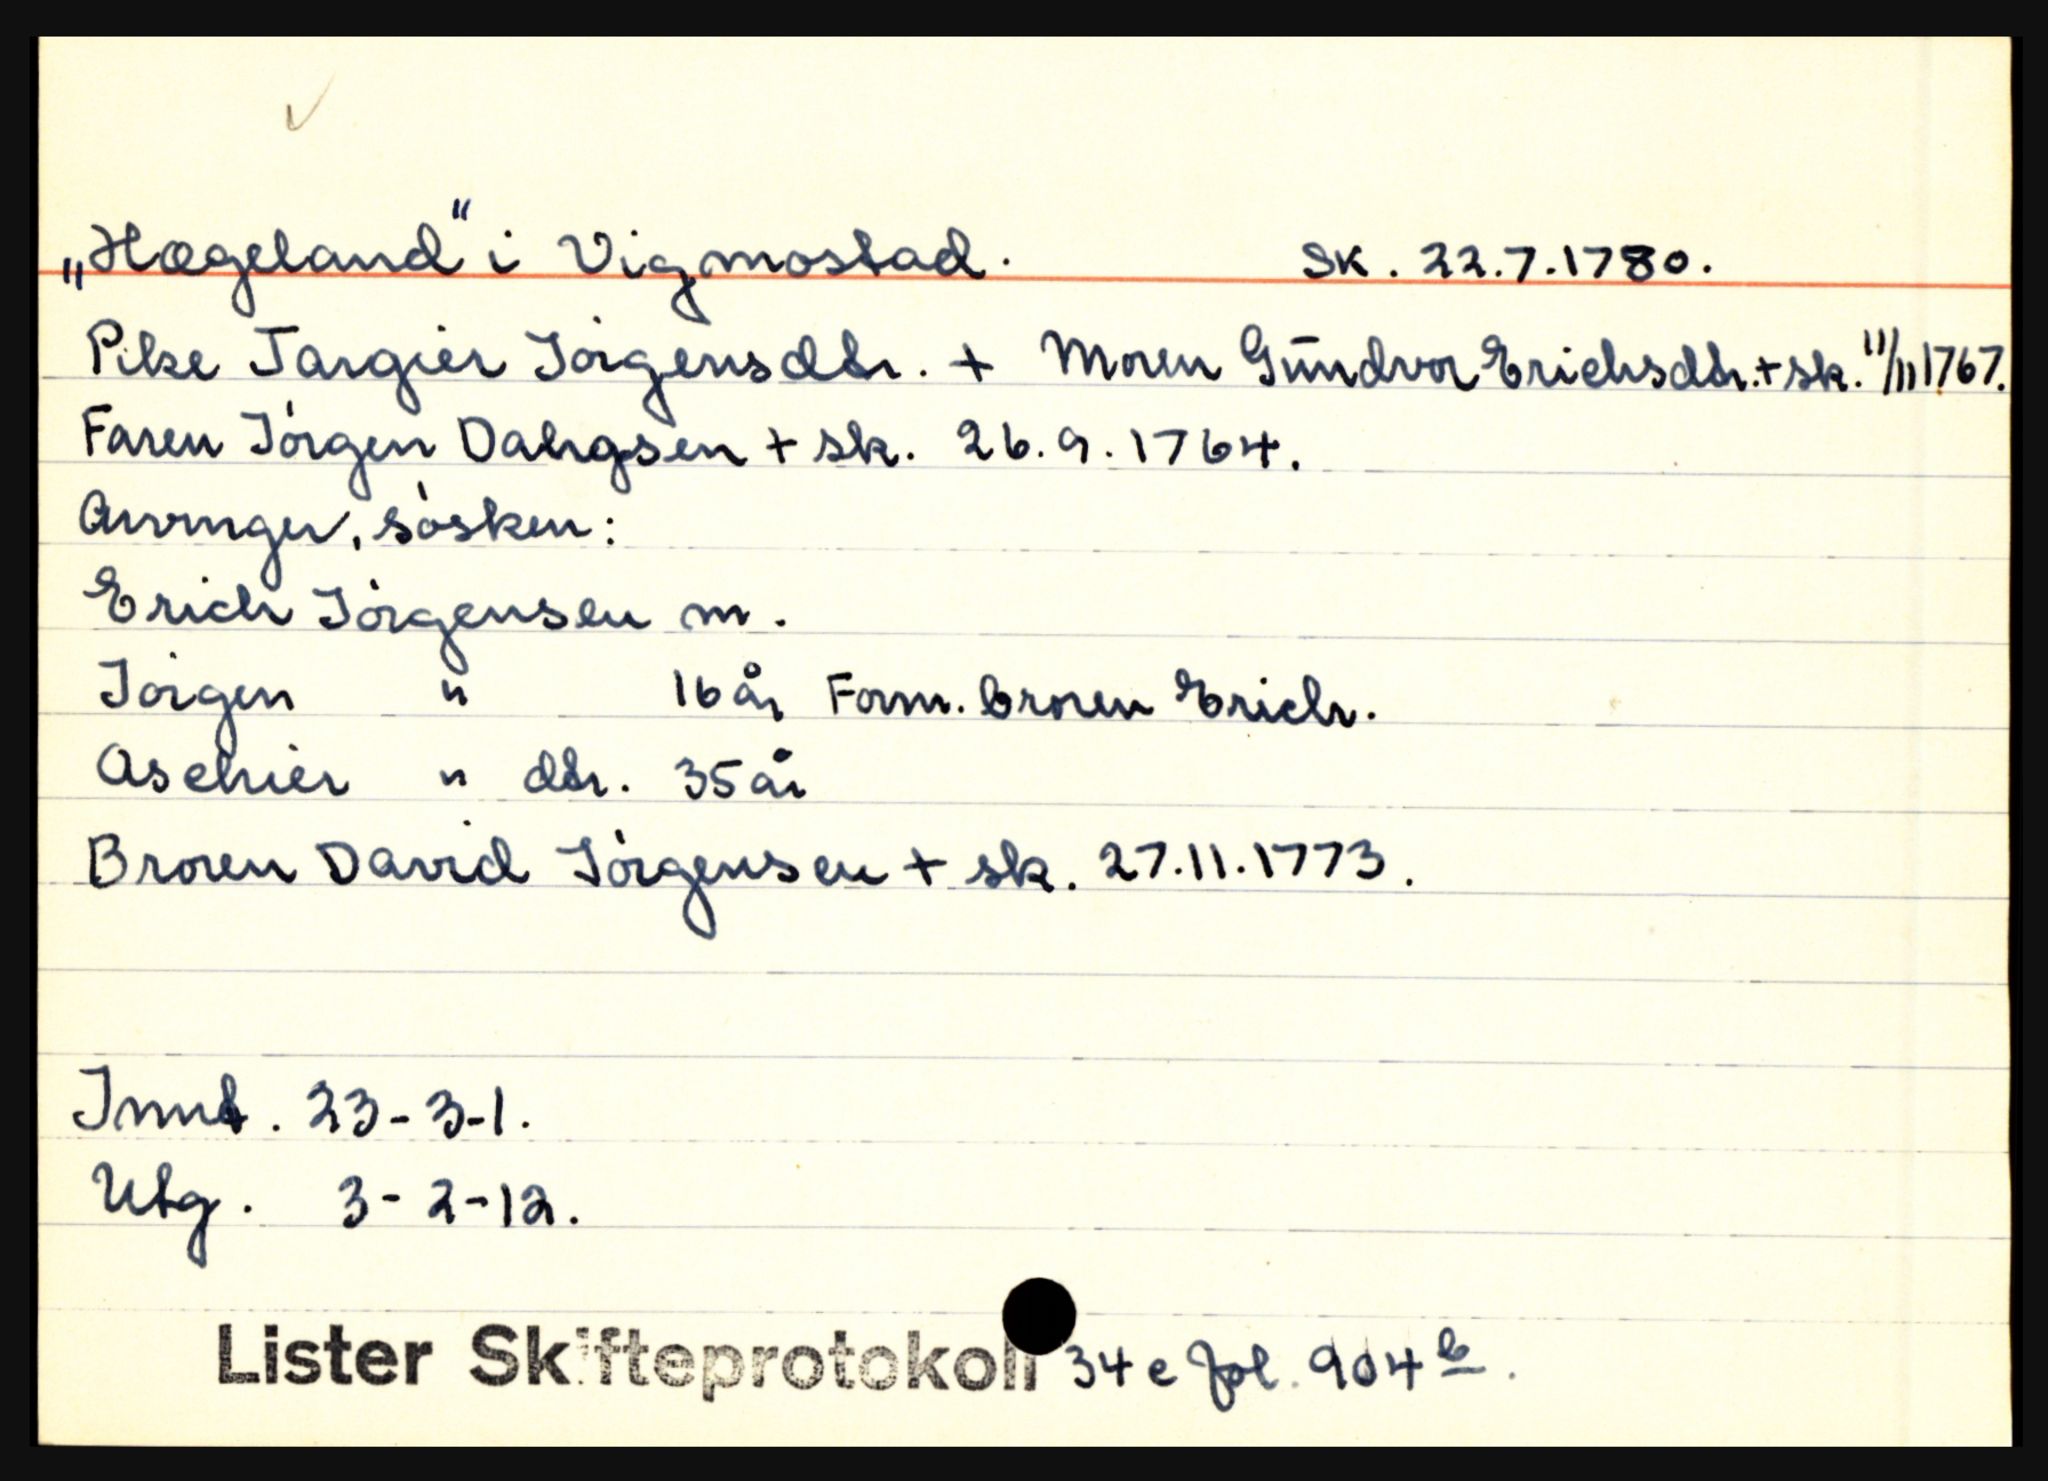 „Hægeland“ i Vigmostad. Sk. 22.7.1780.
Pike Targier Jörgensdtr. + Moren Gūndvor Erichsdtr. + sk. 11/11 1767.
Faren Jörgen Dahgsen + sk. 26.9.1764.
Arvinger, sösken:
Erich Jörgensen m.
Jörgen " 16 år Form. broren Erich.
Aschier " dtr. 35 år
Broren David Jörgensen + sk. 27.11.1773.
Innt. 23-3-1.
Utg. 3-2-12.
Lister Skifteprotokoll 34 e fol. 904 b.